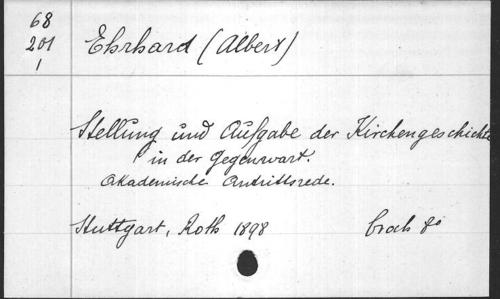 68
201
1
Ehrhard (Albert)
Stellung und Aufgabe der Kirchengeschichte
in der Gegenwart.
Akademische Antrittsrede.
Stuttgart, Roth 1898 broch 8°